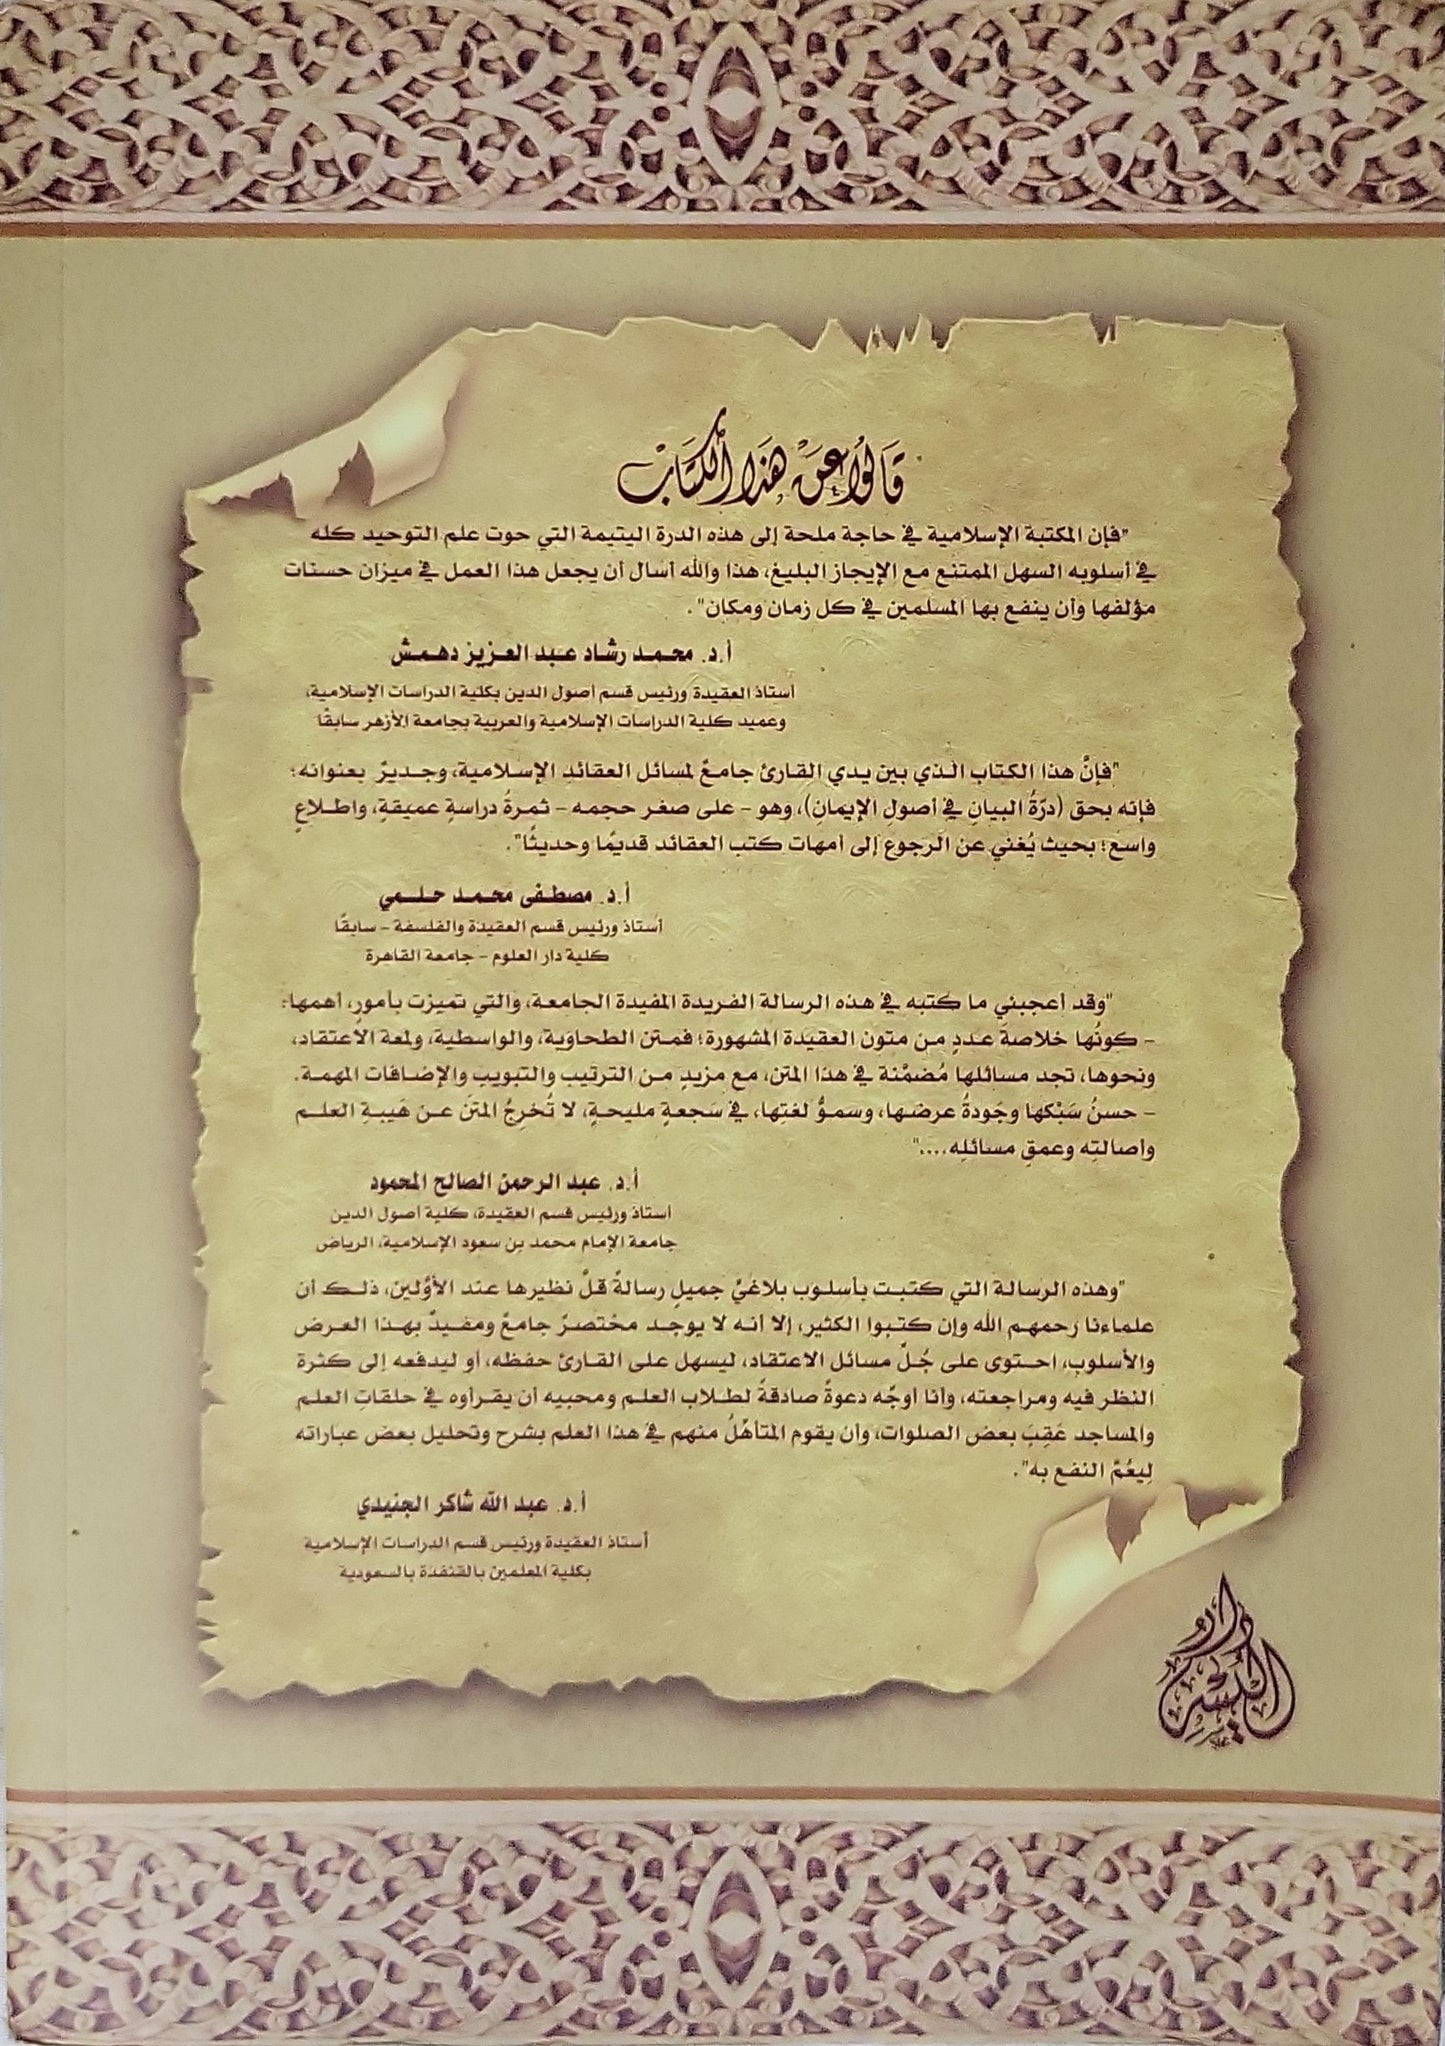 قَالُوا عَنْ هَذَا الْكِتَابِ
"فإن المكتبة الإسلامية في حاجة ملحة إلى هذه الدرة اليتيمة التي حوت علم التوحيد كله
في أسلوبه السهل الممتنع مع الإيجاز البليغ، هذا والله أسال أن يجعل هذا العمل في ميزان حسنات
مؤلفها وأن ينفع بها المسلمين في كل زمان ومكان".
أ.د. محمد رشاد عبد العزيز دهمش
أستاذ العقيدة ورئيس قسم أصول الدين بكلية الدراسات الإسلامية،
وعميد كلية الدراسات الإسلامية والعربية بجامعة الأزهر سابقًا
"فإنَّ هذا الكتاب الذي بين يدي القارئ جامعٌ لمسائل العقائد الإسلامية، وجديرٌ بعنوانه؛
فإنه بحق (درّةُ البيانِ في أصولِ الإيمانِ)، وهو - على صغر حجمه - ثمرةُ دراسةٍ عميقةٍ، واطلاعٍ
واسع؛ بحيث يُغني عن الرجوع إلى أمهات كتب العقائد قديمًا وحديثًا".
أ.د. مصطفى محمد حلمي
أستاذ ورئيس قسم العقيدة والفلسفة - سابقًا
كلية دار العلوم - جامعة القاهرة
"وقد أعجبني ما كتبه في هذه الرسالة الفريدة المفيدة الجامعة، والتي تميزت بأمورٍ، أهمها:
- كونُها خلاصةَ عددٍ من متون العقيدة المشهورة؛ فمتن الطحاوية، والواسطية، ولمعة الاعتقاد،
ونحوها، تجد مسائلها مُضمَّنة في هذا المتن، مع مزيدٍ من الترتيب والتبويب والإضافات المهمة.
- حسنُ سَبْكها وجَودةُ عرضها، وسموُّ لغتِها، في سَجعةٍ مليحةٍ، لا تُخرِجُ المتنَ عن هَيبةِ العلم
وأصالتِه وعمقِ مسائلِه...."
أ.د. عبد الرحمن الصالح المحمود
أستاذ ورئيس قسم العقيدة، كلية أصول الدين
جامعة الإمام محمد بن سعود الإسلامية، الرياض
"وهذه الرسالة التي كتبت بأسلوب بلاغيٍّ جميلٍ رسالةٌ قلَّ نظيرها عند الأوَّلين، ذلك أن
علماءنا رحمهم الله وإن كتبوا الكثير، إلا أنه لا يوجد مختصرٌ جامعٌ ومفيدٌ بهذا العرض
والأسلوب، احتوى على جُلِّ مسائل الاعتقاد، ليسهل على القارئ حفظه، أو ليدفعه إلى كثرة
النظر فيه ومراجعته، وأنا أوجِّه دعوةً صادقةً لطلاب العلم ومحبيه أن يقرأوه في حلقات العلم
والمساجد عَقِبَ بعض الصلوات، وأن يقوم المتأهِّلُ منهم في هذا العلم بشرح وتحليل بعض عباراته
لِيعُمَّ النفع به".
أ.د. عبد الله شاكر الجنيدي
أستاذ العقيدة ورئيس قسم الدراسات الإسلامية
بكلية المعلمين بالقنفذة بالسعودية
دار اليسر